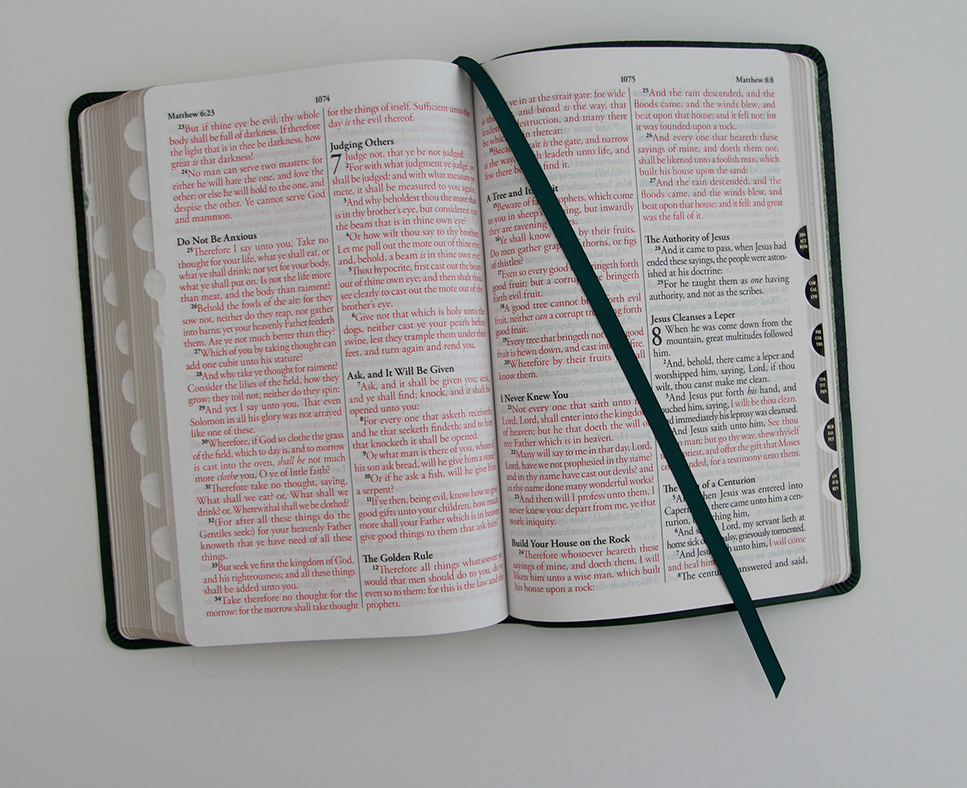 Matthew 6:23
1074
23But if thine eye be evil, thy whole
body shall be full of darkness. If therefore
the light that is in thee be darkness, how
great is that darkness!
24No man can serve two masters: for
either he will hate the one, and love the
other; or else he will hold to the one, and
despise the other. Ye cannot serve God
and mammon.
Do Not Be Anxious
25Therefore I say unto you, Take no
thought for your life, what ye shall eat, or
what ye shall drink; nor yet for your body,
what ye shall put on. Is not the life more
than meat, and the body than raiment?
26Behold the fowls of the air: for they
sow not, neither do they reap, nor gather
into barns; yet your heavenly Father feedeth
them. Are ye not much better than they?
27Which of you by taking thought can
add one cubit unto his stature?
28And why take ye thought for raiment?
Consider the lilies of the field, how they
grow; they toil not, neither do they spin:
29And yet I say unto you, That even
Solomon in all his glory was not arrayed
like one of these.
30Wherefore, if God so clothe the grass
of the field, which to day is, and to morrow
is cast into the oven, shall he not much
more clothe you, O ye of little faith?
31Therefore take no thought, saying,
What shall we eat? or, What shall we
drink? or, Wherewithal shall we be clothed?
32(For after all these things do the
Gentiles seek:) for your heavenly Father
knoweth that ye have need of all these
things.
33But seek ye first the kingdom of God,
and his righteousness; and all these things
shall be added unto you.
34Take therefore no thought for the
morrow: for the morrow shall take thought
for the things of itself. Sufficient unto the
day is the evil thereof.
Judging Others
7 Judge not, that ye be not judged.
2For with what judgment ye judge, ye
shall be judged: and with what measure ye
mete, it shall be measured to you again.
3And why beholdest thou the mote that
is in thy brother's eye, but considerest not
the beam that is in thine own eye?
4Or how wilt thou say to thy brother,
Let me pull out the mote out of thine eye;
and, behold, a beam is in thine own eye?
5Thou hypocrite, first cast out the beam
out of thine own eye; and then shalt thou
see clearly to cast out the mote out of thy
brother's eye.
6Give not that which is holy unto the
dogs, neither cast ye your pearls before
swine, lest they trample them under their
feet, and turn again and rend you.
Ask, and It Will Be Given
7Ask, and it shall be given you; seek,
and ye shall find; knock, and it shall be
opened unto you:
8For every one that asketh receiveth;
and he that seeketh findeth; and to him
that knocketh it shall be opened.
9Or what man is there of you, whom if
his son ask bread, will he give him a stone?
10Or if he ask a fish, will he give him
a serpent?
11If ye then, being evil, know how to give
good gifts unto your children, how much
more shall your Father which is in heaven
give good things to them that ask him?
The Golden Rule
12Therefore all things whatsoever ye
would that men should do to you, do ye
even so to them: for this is the law and the
prophets.
1075
Matthew 8:8
ye in at the strait gate: for wide
and broad is the way, that
destruction, and many there
thereat:
14Because is the gate, and narrow
is the way, leadeth unto life, and
few there be find it.
A Tree and Its
15Beware of prophets, which come
to you in sheep's but inwardly
they are ravening
16Ye shall know by their fruits.
Do men gather grapes thorns, or figs
of thistles?
17Even so every good bringeth forth
good fruit; but a corrupt bringeth
forth evil fruit.
18A good tree cannot forth evil
fruit, neither can a corrupt tree forth
good fruit.
19Every tree that bringeth not good
fruit is hewn down, and cast into fire.
20Wherefore by their fruits shall
know them.
I Never Knew You
21Not every one that saith unto
Lord, Lord, shall enter into the kingdom
of heaven; but he that doeth the will of
my Father which is in heaven.
22Many will say to me in that day, Lord,
Lord, have we not prophesied in thy name?
and in thy name have cast out devils? and
in thy name done many wonderful works?
23And then will I profess unto them, I
never knew you: depart from me, ye that
work iniquity.
Build Your House on the Rock
24Therefore whosoever heareth these
sayings of mine, and doeth them, I will
liken him unto a wise man, which built
his house upon a rock:
25And the rain descended, and the
floods came, and the winds blew, and
beat upon that house; and it fell not: for
it was founded upon a rock.
26And every one that heareth these
sayings of mine, and doeth them not,
shall be likened unto a foolish man, which
built his house upon the sand:
27And the rain descended, and the
floods came, and the winds blew, and
beat upon that house; and it fell: and great
was the fall of it.
The Authority of Jesus
28And it came to pass, when Jesus had
ended these sayings, the people were aston-
ished at his doctrine:
29For he taught them as one having
authority, and not as the scribes.
Jesus Cleanses a Leper
8 When he was come down from the
mountain, great multitudes followed
him.
2And, behold, there came a leper and
worshipped him, saying, Lord, if thou
wilt, thou canst make me clean.
3And Jesus put forth his hand, and
touched him, saying, I will; be thou clean.
And immediately his leprosy was cleansed.
4And Jesus saith unto him, See thou
no man; but go thy way, shew thyself
priest, and offer the gift that Moses
for a testimony unto them.
The of a Centurion
5And when Jesus was entered into
there came unto him a cen-
turion, him,
Lord, my servant lieth at
home sick palsy, grievously tormented.
7And Jesus unto him, I will come
and heal him.
8The centurion answered and said,
JHN
ACT
ROM
COR
GAL
EPH
PHI
COL
THS
TIM
TIT
PHM
HEB
JAS
PET
JN
JUD
REV